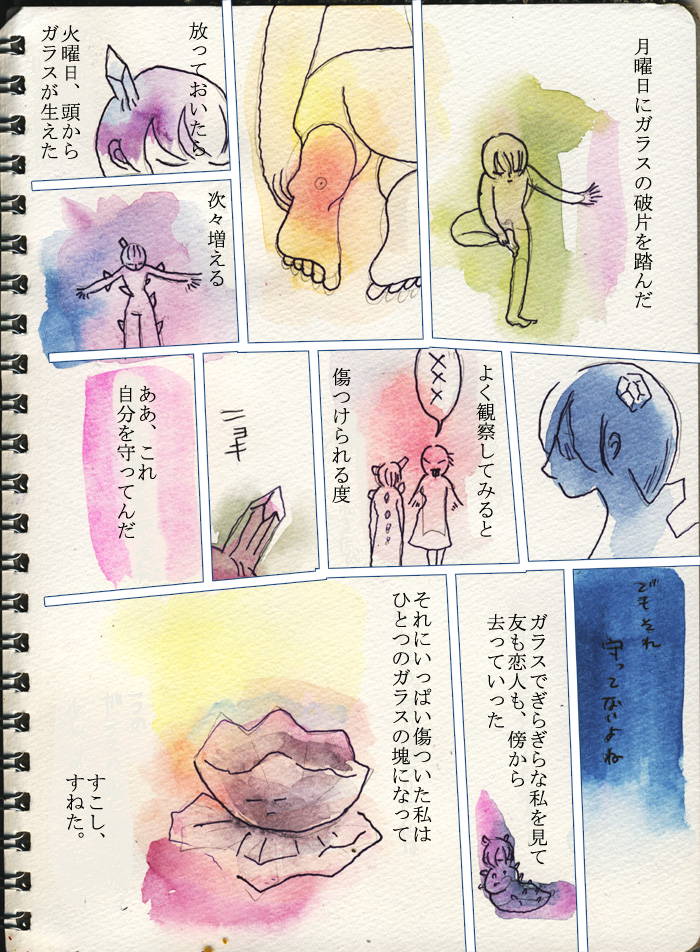 月曜日にガラスの破片を踏んだ
放っておいたら
火曜日、頭から
ガラスが生えた
次々増える
よく観察してみると
×××
傷つけられる度
ニョキ
ああ、これ
自分を守ってんだ
でもそれ
守ってないよね
ガラスでぎらぎらな私を見て
友も恋人も、傍から
去っていった
それにいっぱい傷ついた私は
ひとつのガラスの塊になって
すこし、
すねた。